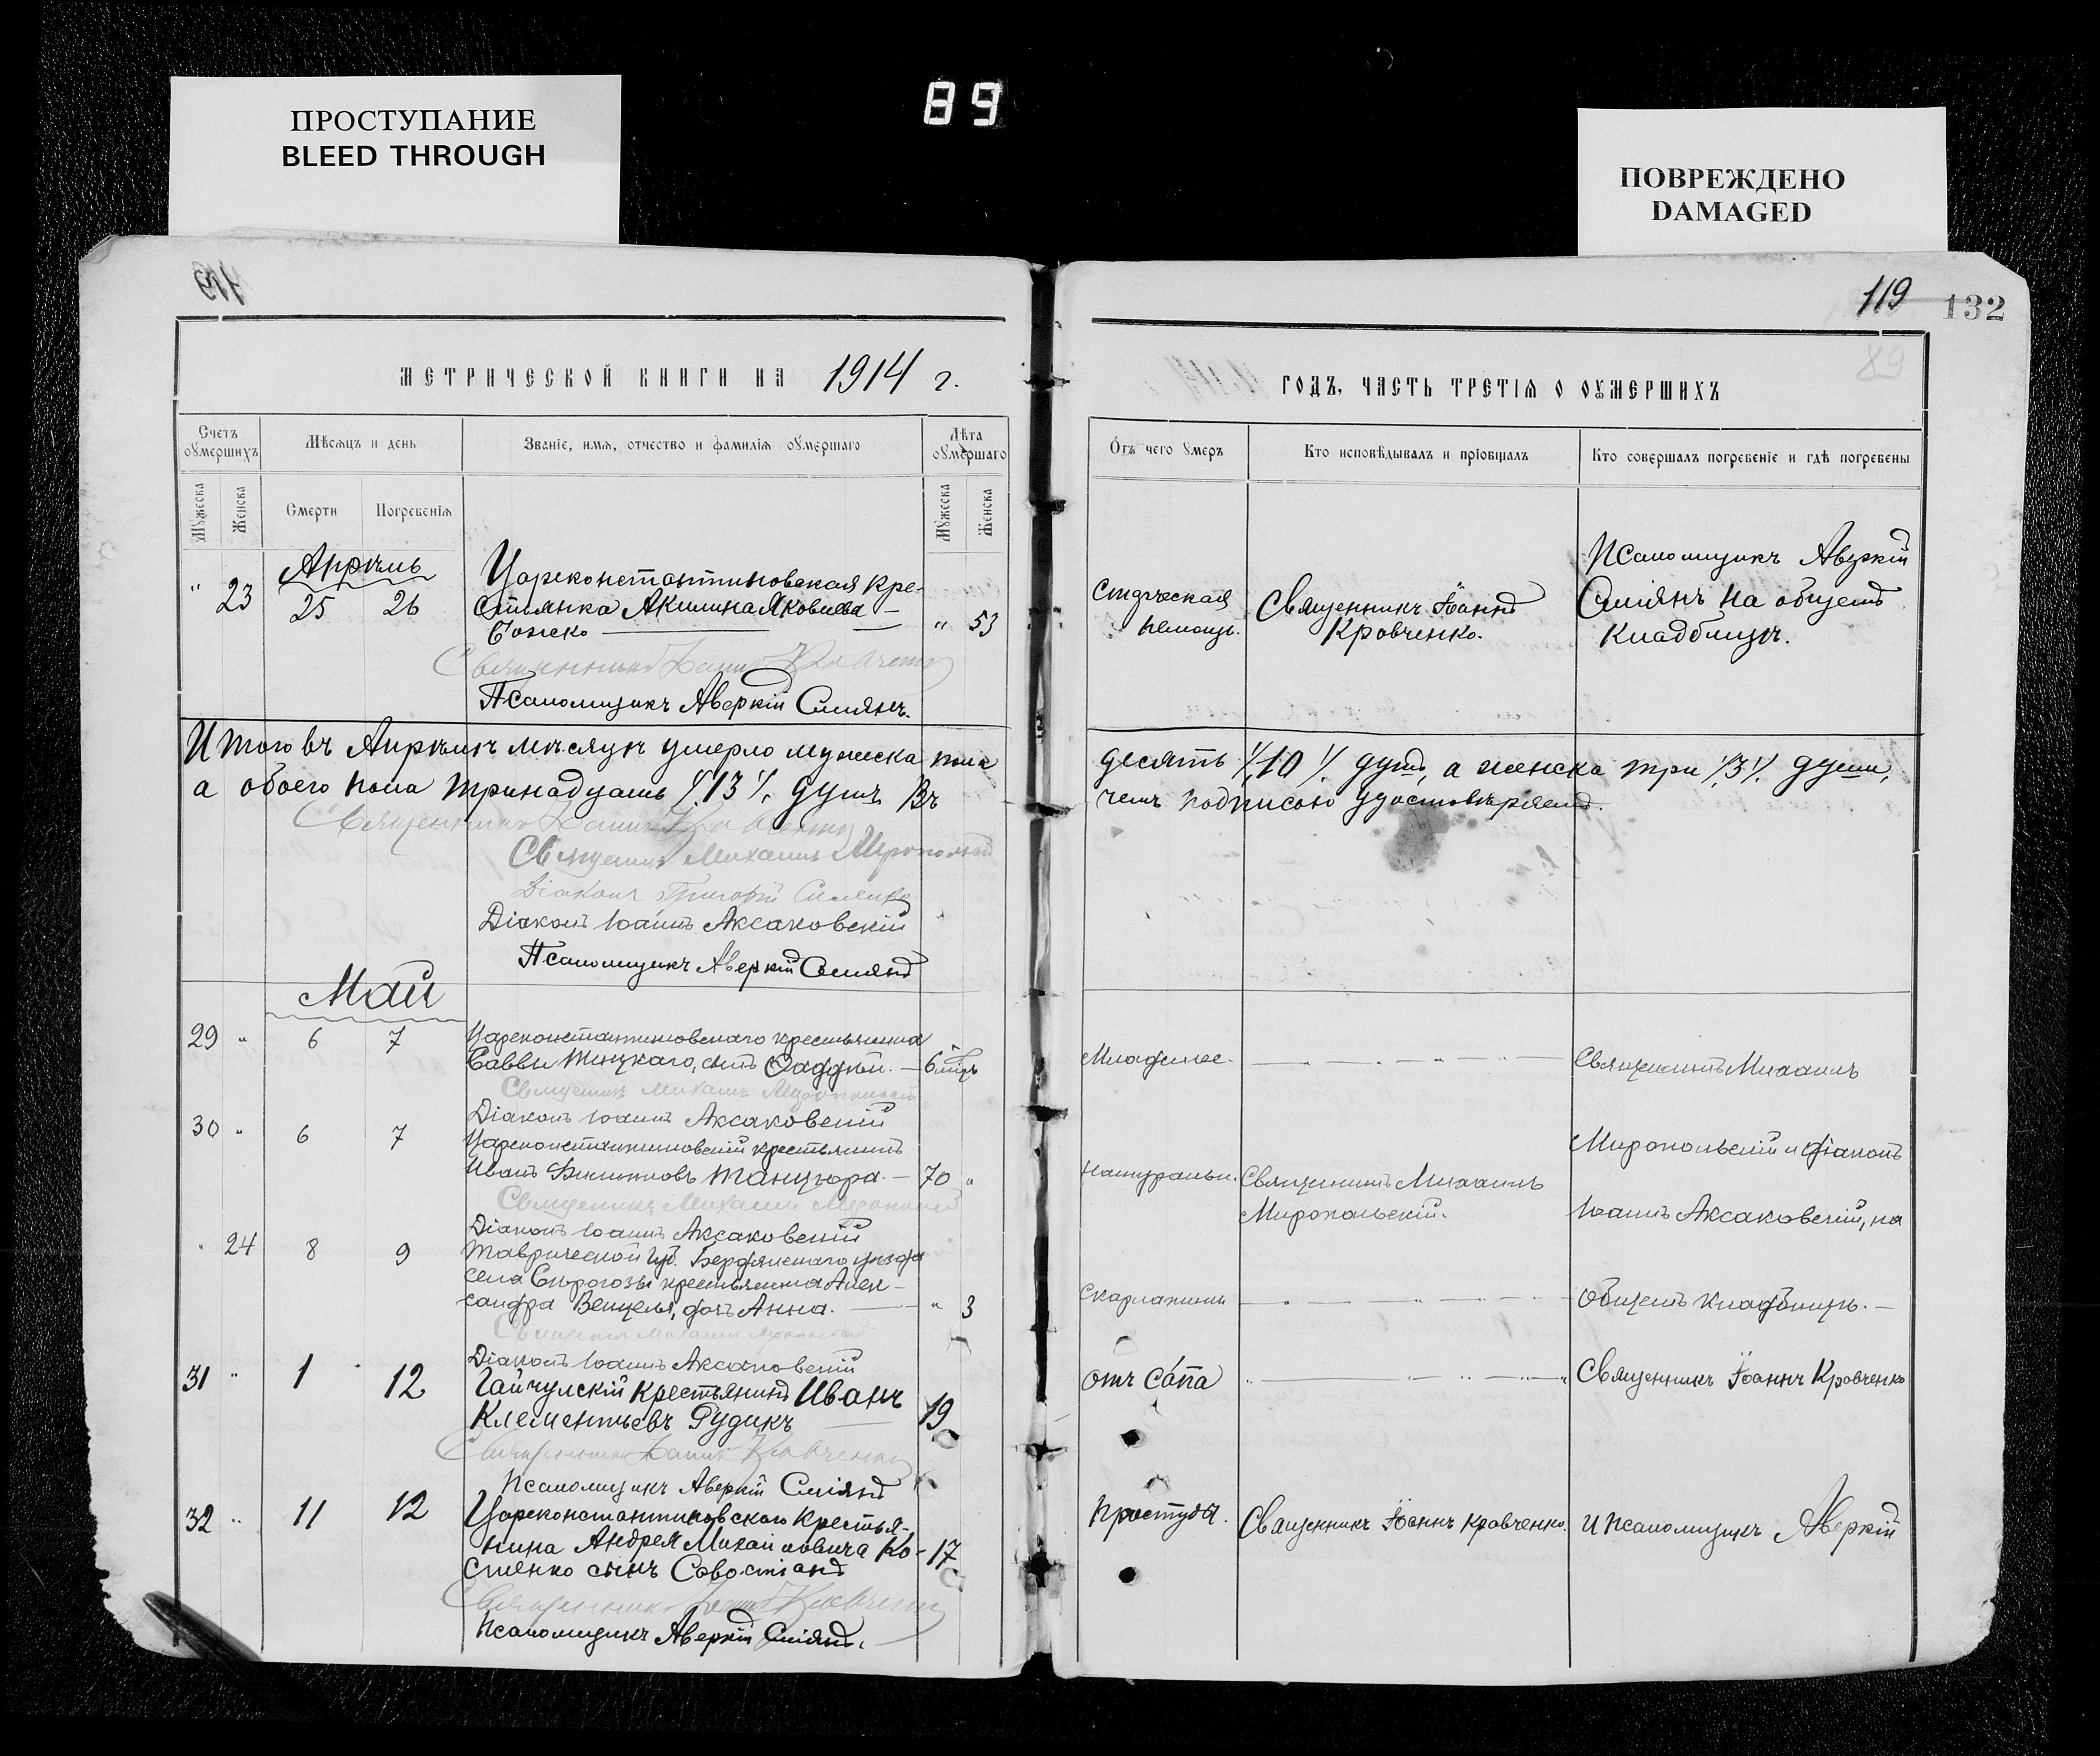 ПРОСТУПАНИЕ
BLEED THROUGH
89
ПОВРЕЖДЕНО
DAMAGED
119
132
МЕТРИЧЕСКОЙ КНИГИ НА 1914 г.
Счетъ умершихъ
Мѣсяцъ и день
Званіе, имя, отчество и фамилія умершаго
Лѣта умершаго
Мужеска
Женска
Смерти
Погребенія
Мужеска
Женска
Апрѣль
" 23 25 26
Цареконстантиновская кре-
стьянка Акилина Яковлева
" 53
Священникъ Іоаннъ Кравченко
Псаломщикъ Аверкій Сміянъ.
Итого въ Апрѣлѣ мѣсяцѣ умерло мужеска пола
а обоего пола тринадцать /13/. душъ Въ
Священникъ Іоаннъ Кравченко
Священникъ Михаилъ Миропольскій
Діаконъ Григорій
Діаконъ Іоаннъ Аксаковскій
Псаломщикъ Аверкій Сміянъ
Май
29 " 6 7
Цареконстантиновскаго крестьянина
Саввы сынъ Фаддей. — 6
Священникъ Михаилъ Миропольскій
Діаконъ Іоаннъ Аксаковскій
30 " 6 7
Цареконстантиновскій крестьянинъ
Иванъ Танцюра. — 70 "
Священникъ Михаилъ Миропольскій
Діаконъ Іоаннъ Аксаковскій
" 24 8 9
Таврической губ. Бердянскаго уѣзда
села крестьянина Алек-
сандра Венцеля, дочь Анна. — " 3
Священникъ Михаилъ Миропольскій
Діаконъ Іоаннъ Аксаковскій
31 " 1 12
Гайчулскій крестьянинъ Иванъ
Клементьевъ Рудикъ 19
Священникъ Іоаннъ Кравченко
Псаломщикъ Аверкій Сміянъ
32 " 11 12
Цареконстантиновскаго крестья-
нина Андрея Михайловича Ко-
стенко сынъ Савостіанъ 17
Священникъ Іоаннъ Кравченко
Псаломщикъ Аверкій Сміянъ.
ГОДЪ, ЧАСТЬ ТРЕТІЯ О УМЕРШИХЪ
Отъ чего умеръ
Кто исповѣдывалъ и пріобщалъ
Кто совершалъ погребеніе и гдѣ погребены
Старческая
немощь.
Священникъ Іоаннъ
Кравченко.
Псаломщикъ Аверкій
Сміянъ на общемъ
кладбищѣ.
десять /10/. душъ, а женска три /3/. души,
чемъ подписомъ удостовѣряемъ.
Священникъ Михаилъ
Священникъ Михаилъ
Миропольскій.
Миропольскій и діаконъ
Іоаннъ Аксаковскій, на
Скарлатина
общемъ кладбищѣ. —
отъ сапа
Священникъ Іоаннъ Кравченко
Простуда.
Священникъ Іоаннъ Кравченко.
и Псаломщикъ Аверкій